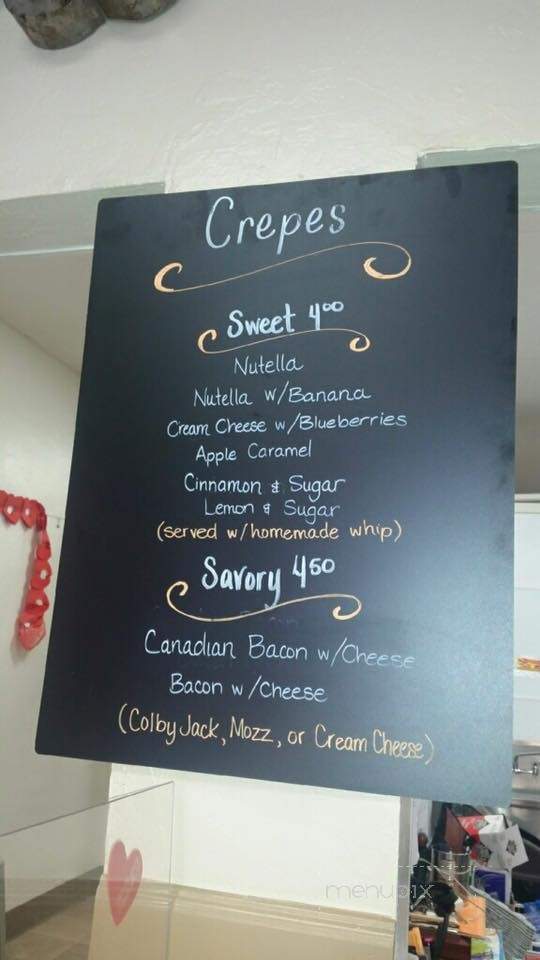 Crepes
Sweet 4.00
Nutella
Nutella w/Banana
Cream Cheese w/Blueberries
Apple Caramel
Cinnamon & Sugar
Lemon & Sugar
(served w/homemade whip)
Savory 4.50
Canadian Bacon w/Cheese
Bacon w/Cheese
(Colby Jack, Mozz, or Cream Cheese)
menupix